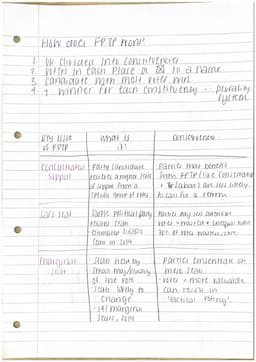 How does FPTP work?
1. UK divided into constituencies
2. Voters in each place a ☒ to a name
3. Candidate with most votes win
4. 1 winner for each constituency - plurality system
Key Issue of FPTP
What is it?
Consequence
Concentrated support
Party candidate
receives a higher level
of support from a
specific area of votes
Parties that benefit
from FPTP like Conservative
+ the Labour are less likely
to call for a reform
Safe seat
Same political party
retains seat
Estimated
seats in 2019
Parties may
votes
Marginal seat
Seats held by
small majority
of the vote
- seats likely to
change
- 141 marginal
seats, 2019
Parties concentrate on
these seats
votes = more valuable
can result in
'tactical voting'